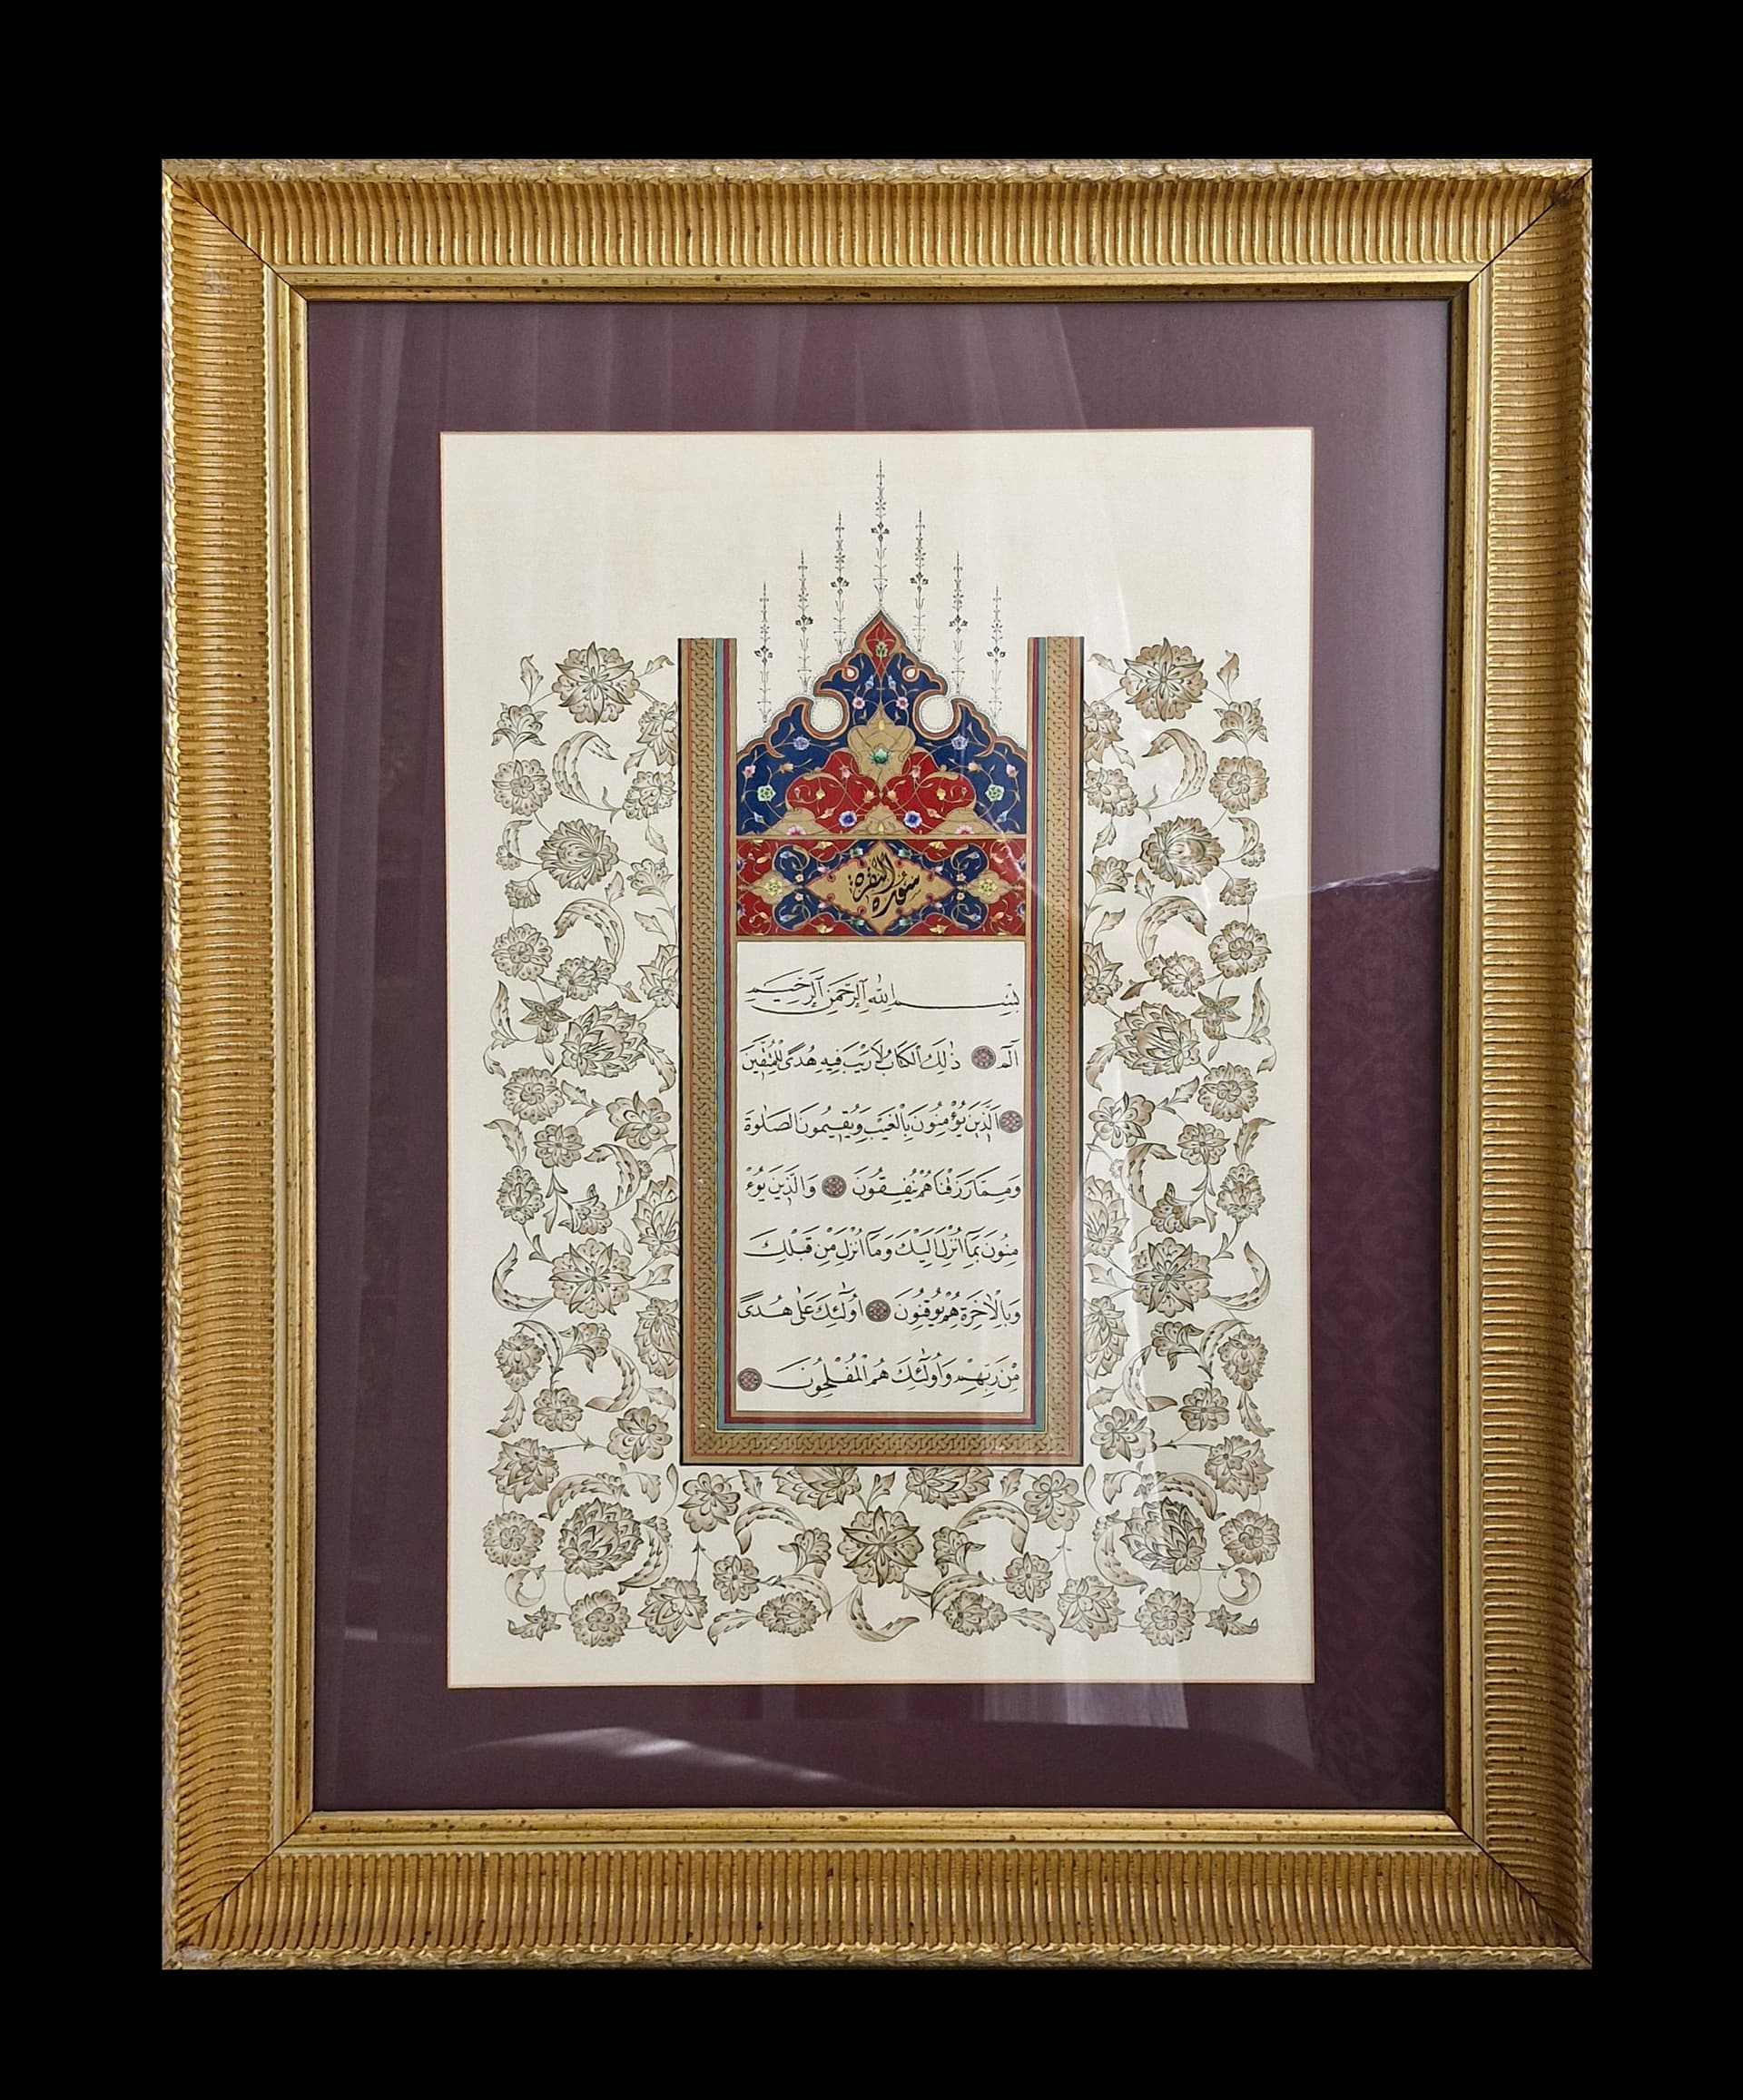 سورة البقرة
بِسْمِ اللهِ الرَّحْمٰنِ الرَّحِيمِ
الٓمٓ ذٰلِكَ الْكِتَابُ لَارَيْبَ فِيهِ هُدًى لِلْمُتَّقِينَ
اَلَّذِينَ يُؤْمِنُونَ بِالْغَيْبِ وَيُقِيمُونَ الصَّلٰوةَ
وَمِمَّا رَزَقْنَاهُمْ يُنْفِقُونَ وَالَّذِينَ يُؤْ
مِنُونَ بِمَٓا اُنْزِلَ اِلَيْكَ وَمَٓا اُنْزِلَ مِنْ قَبْلِكَ
وَبِالْاٰخِرَةِ هُمْ يُوقِنُونَ اُولٰٓئِكَ عَلٰى هُدًى
مِنْ رَبِّهِمْ وَاُولٰٓئِكَ هُمُ الْمُفْلِحُونَ